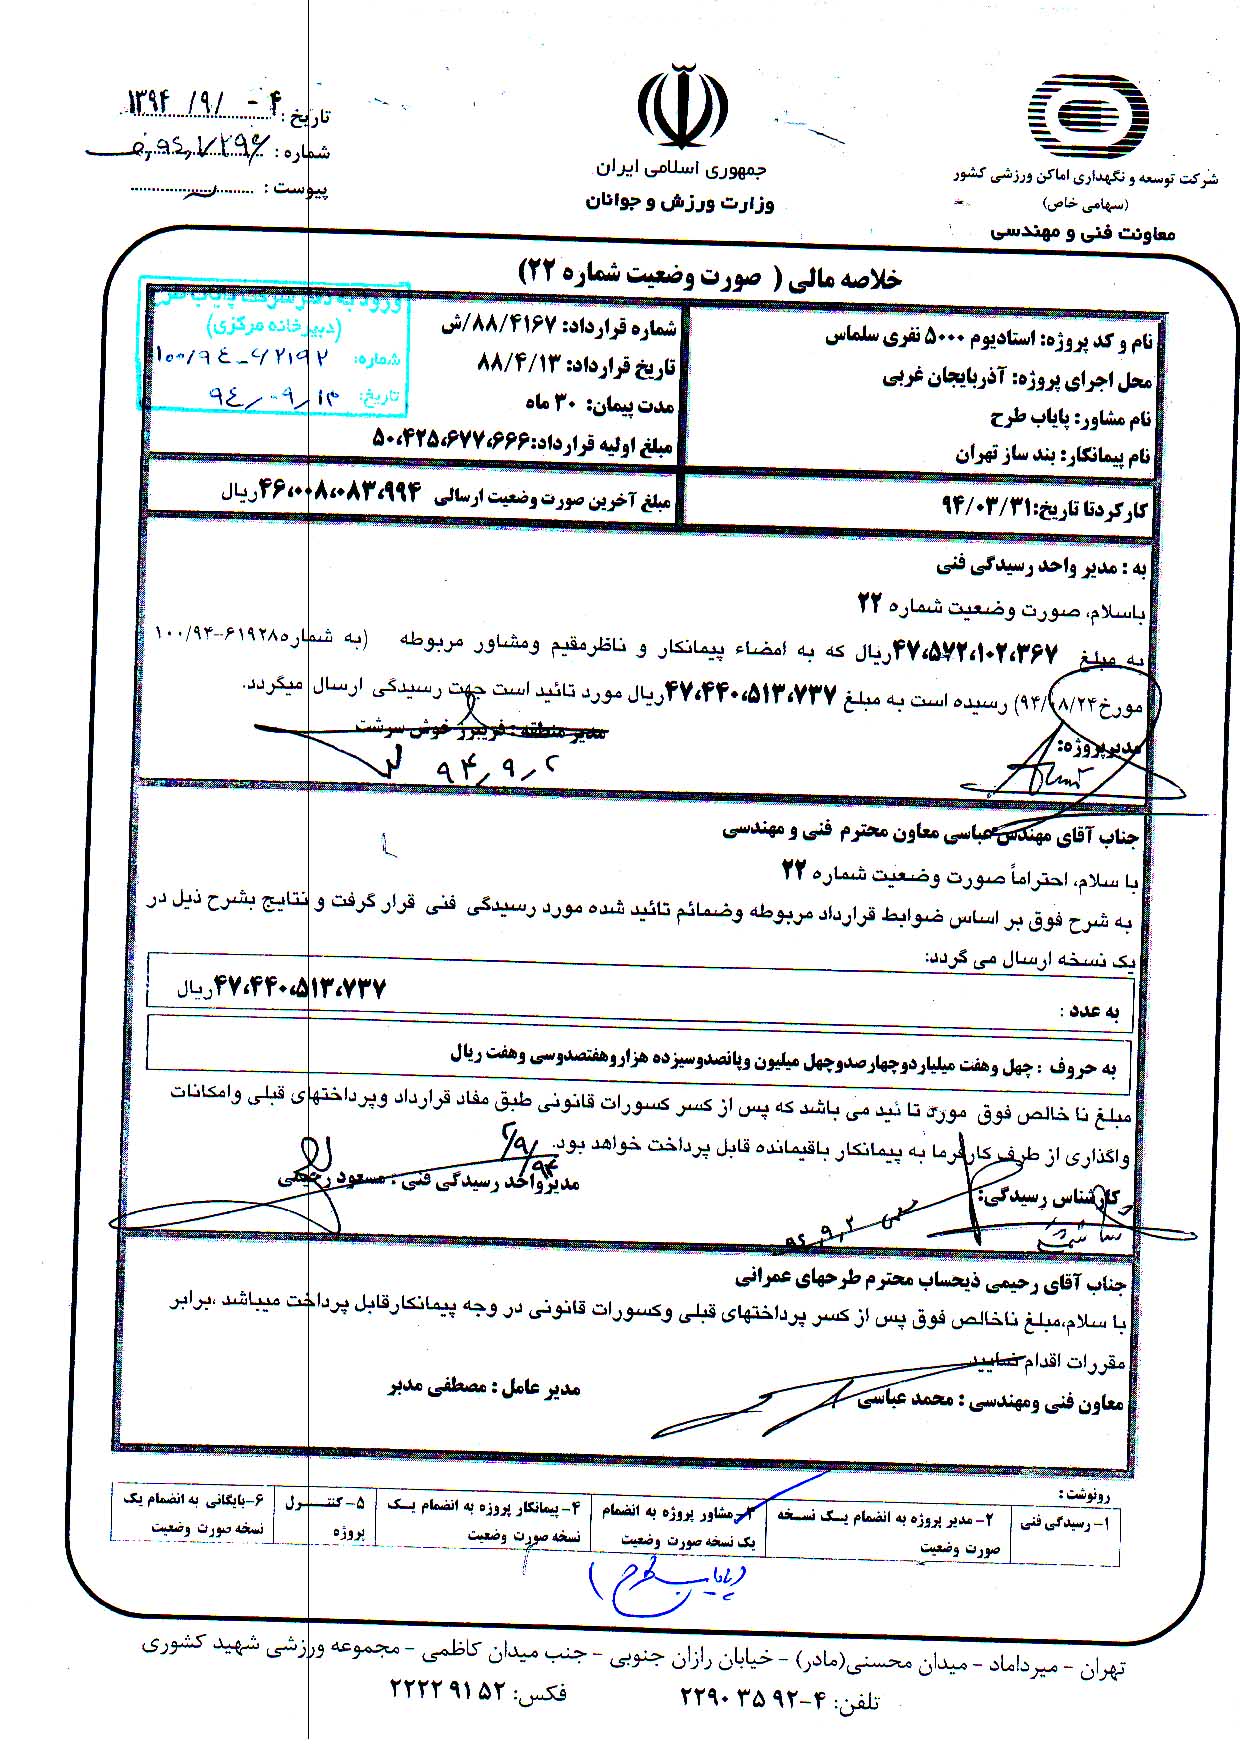 شرکت توسعه و نگهداری اماکن ورزشی کشور
(سهامی خاص)
معاونت فنی و مهندسی
جمهوری اسلامی ایران
وزارت ورزش و جوانان
تاریخ: ۱۳۹۴/۹/۰۴
شماره:
پیوست:
خلاصه مالی ( صورت وضعیت شماره ۲۲)
نام و کد پروژه: استادیوم ۵۰۰۰ نفری سلماس
محل اجرای پروژه: آذربایجان غربی
نام مشاور: پایاب طرح
نام پیمانکار: بند ساز تهران
شماره قرارداد: ۸۸/۴۱۶۷/ش
تاریخ قرارداد: ۸۸/۴/۱۳
مدت پیمان: ۳۰ ماه
مبلغ اولیه قرارداد:۵۰،۴۲۵،۶۷۷،۶۶۶
ورود به دفتر شرکت پایاب طرح
(دبیرخانه مرکزی)
شماره: ۱۰۰/۹۴-۶۲۱۹۲
تاریخ: ۹۴/۰۹/۱۳
کارکردتا تاریخ:۹۴/۰۳/۳۱
مبلغ آخرین صورت وضعیت ارسالی ۴۶،۰۰۸،۰۸۳،۹۹۴ریال
به : مدیر واحد رسیدگی فنی
باسلام، صورت وضعیت شماره ۲۲
به مبلغ ۴۷،۵۷۲،۱۰۲،۳۶۷ریال که به امضاء پیمانکار و ناظرمقیم ومشاور مربوطه (به شماره۶۱۹۲۸-۱۰۰/۹۴
مورخ۹۴/۰۸/۲۴) رسیده است به مبلغ ۴۷،۴۴۰،۵۱۳،۷۳۷ریال مورد تائید است جهت رسیدگی ارسال میگردد.
مدیرپروژه:
مدیر منطقه : فریبرز خوش سرشت
۹۴/۹/۲
جناب آقای مهندس عباسی معاون محترم فنی و مهندسی
با سلام، احتراماً صورت وضعیت شماره ۲۲
به شرح فوق بر اساس ضوابط قرارداد مربوطه وضمائم تائید شده مورد رسیدگی فنی قرار گرفت و نتایج بشرح ذیل در
یک نسخه ارسال می گردد:
به عدد : ۴۷،۴۴۰،۵۱۳،۷۳۷ریال
به حروف : چهل وهفت میلیاردوچهارصدوچهل میلیون وپانصدوسیزده هزاروهفتصدوسی وهفت ریال
مبلغ نا خالص فوق مورد تا ئید می باشد که پس از کسر کسورات قانونی طبق مفاد قرارداد وپرداختهای قبلی وامکانات
واگذاری از طرف کارفرما به پیمانکار باقیمانده قابل پرداخت خواهد بود.
کارشناس رسیدگی:
مدیرواحد رسیدگی فنی : مسعود رحیمی
جناب آقای رحیمی ذیحساب محترم طرحهای عمرانی
با سلام،مبلغ ناخالص فوق پس از کسر پرداختهای قبلی وکسورات قانونی در وجه پیمانکارقابل پرداخت میباشد ،برابر
مقررات اقدام نمایید
معاون فنی ومهندسی : محمد عباسی
مدیر عامل : مصطفی مدبر
رونوشت:
۱- رسیدگی فنی
۲- مدیر پروژه به انضمام یک نسخه
صورت وضعیت
۳- مشاور پروژه به انضمام
یک نسخه صورت وضعیت
۴- پیمانکار پروژه به انضمام یک
نسخه صورت وضعیت
۵- کنترل
پروژه
۶-بایگانی به انضمام یک
نسخه صورت وضعیت
(پایاب طرح)
تهران - میرداماد - میدان محسنی(مادر) - خیابان رازان جنوبی - جنب میدان کاظمی - مجموعه ورزشی شهید کشوری
تلفن: ۴-۲۲۹۰۳۵۹۲ فکس: ۲۲۲۲۹۱۵۲